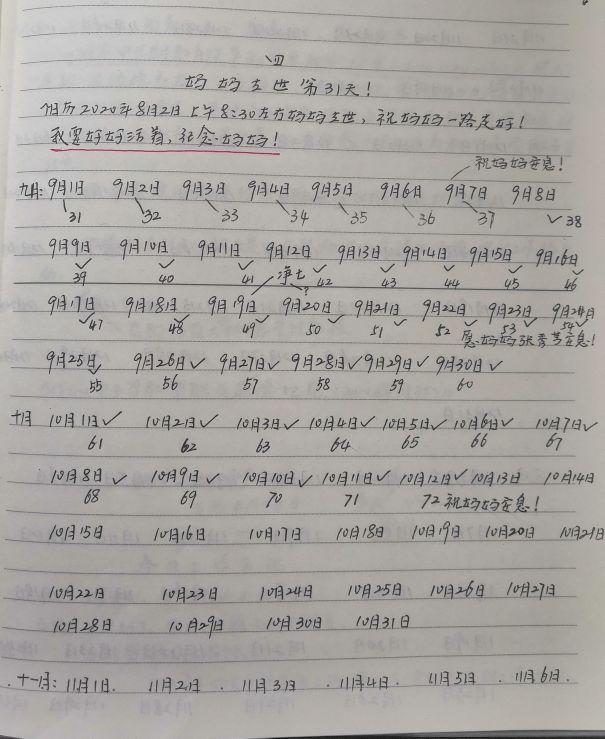 四
妈妈去世第31天！
阳历2020年8月2日上午8:30左右妈妈去世，祝妈妈一路走好！
我要好好活着，纪念妈妈！
祝妈妈安息！
九月：9月1日 9月2日 9月3日 9月4日 9月5日 9月6日 9月7日 9月8日
31 32 33 34 35 36 37 ✓38
9月9日 9月10日 9月11日 9月12日 9月13日 9月14日 9月15日 9月16日
✓39 ✓40 ✓41 净土? ✓42 ✓43 ✓44 ✓45 ✓46
9月17日 9月18日 9月19日 9月20日 9月21日 9月22日 9月23日 9月24日
✓47 ✓48 ✓49 ✓50 ✓51 ✓52 ✓53 54✓
愿妈妈张秀芝安息！
9月25日✓ 9月26日✓ 9月27日✓ 9月28日✓ 9月29日✓ 9月30日✓
55 56 57 58 59 60
十月 10月1日✓ 10月2日✓ 10月3日✓ 10月4日✓ 10月5日✓ 10月6日✓ 10月7日✓
61 62 63 64 65 66 67
10月8日✓ 10月9日✓ 10月10日✓ 10月11日✓ 10月12日✓ 10月13日 10月14日
68 69 70 71 72 祝妈妈安息！
10月15日 10月16日 10月17日 10月18日 10月19日 10月20日 10月21日
10月22日 10月23日 10月24日 10月25日 10月26日 10月27日
10月28日 10月29日 10月30日 10月31日
十一月：11月1日. 11月2日. 11月3日. 11月4日. 11月5日. 11月6日.